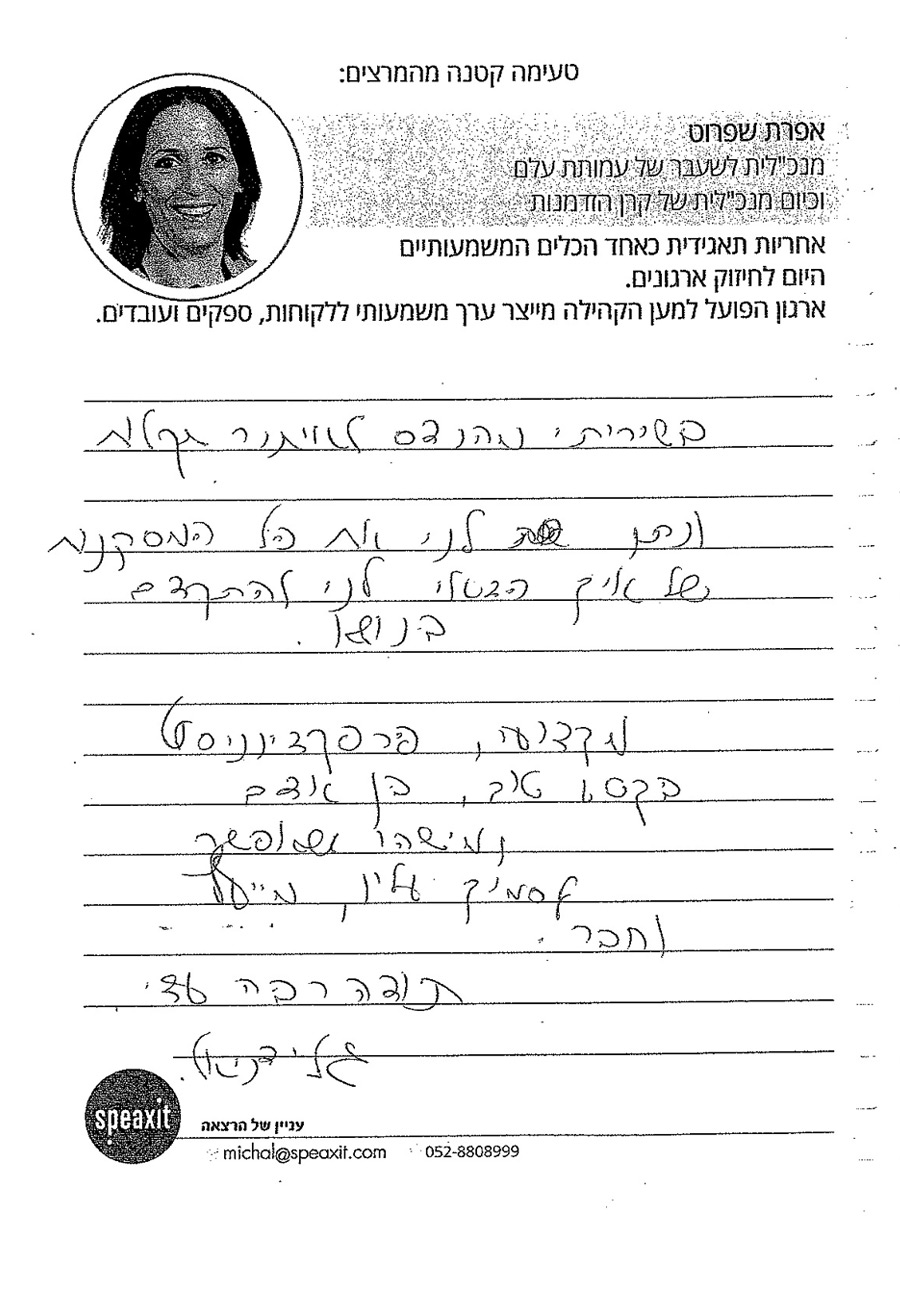 טעימה קטנה מהמרצים:
אפרת שפרוט
מנכ"לית לשעבר של עמותת עלם
וכיום מנכ"לית של קרן הזדמנות
אחריות תאגידית כאחד הכלים המשמעותיים
היום לחיזוק ארגונים.
ארגון הפועל למען הקהילה מייצר ערך משמעותי ללקוחות, ספקים ועובדים.
בשירותי מהנדס לאיתור תקלות
ונתן לני את כל המסקנות
של איך לני להתקדם
בנושא.
מקצועי, פרפקציוניסט
בקטע טוב, בן אדם
ומישהו שאפשר
לסמוך עליו, מייעץ
וחבר.
תודה רבה עדי
גלי
speaxit
עניין של הרצאה
michal@speaxit.com 052-8808999